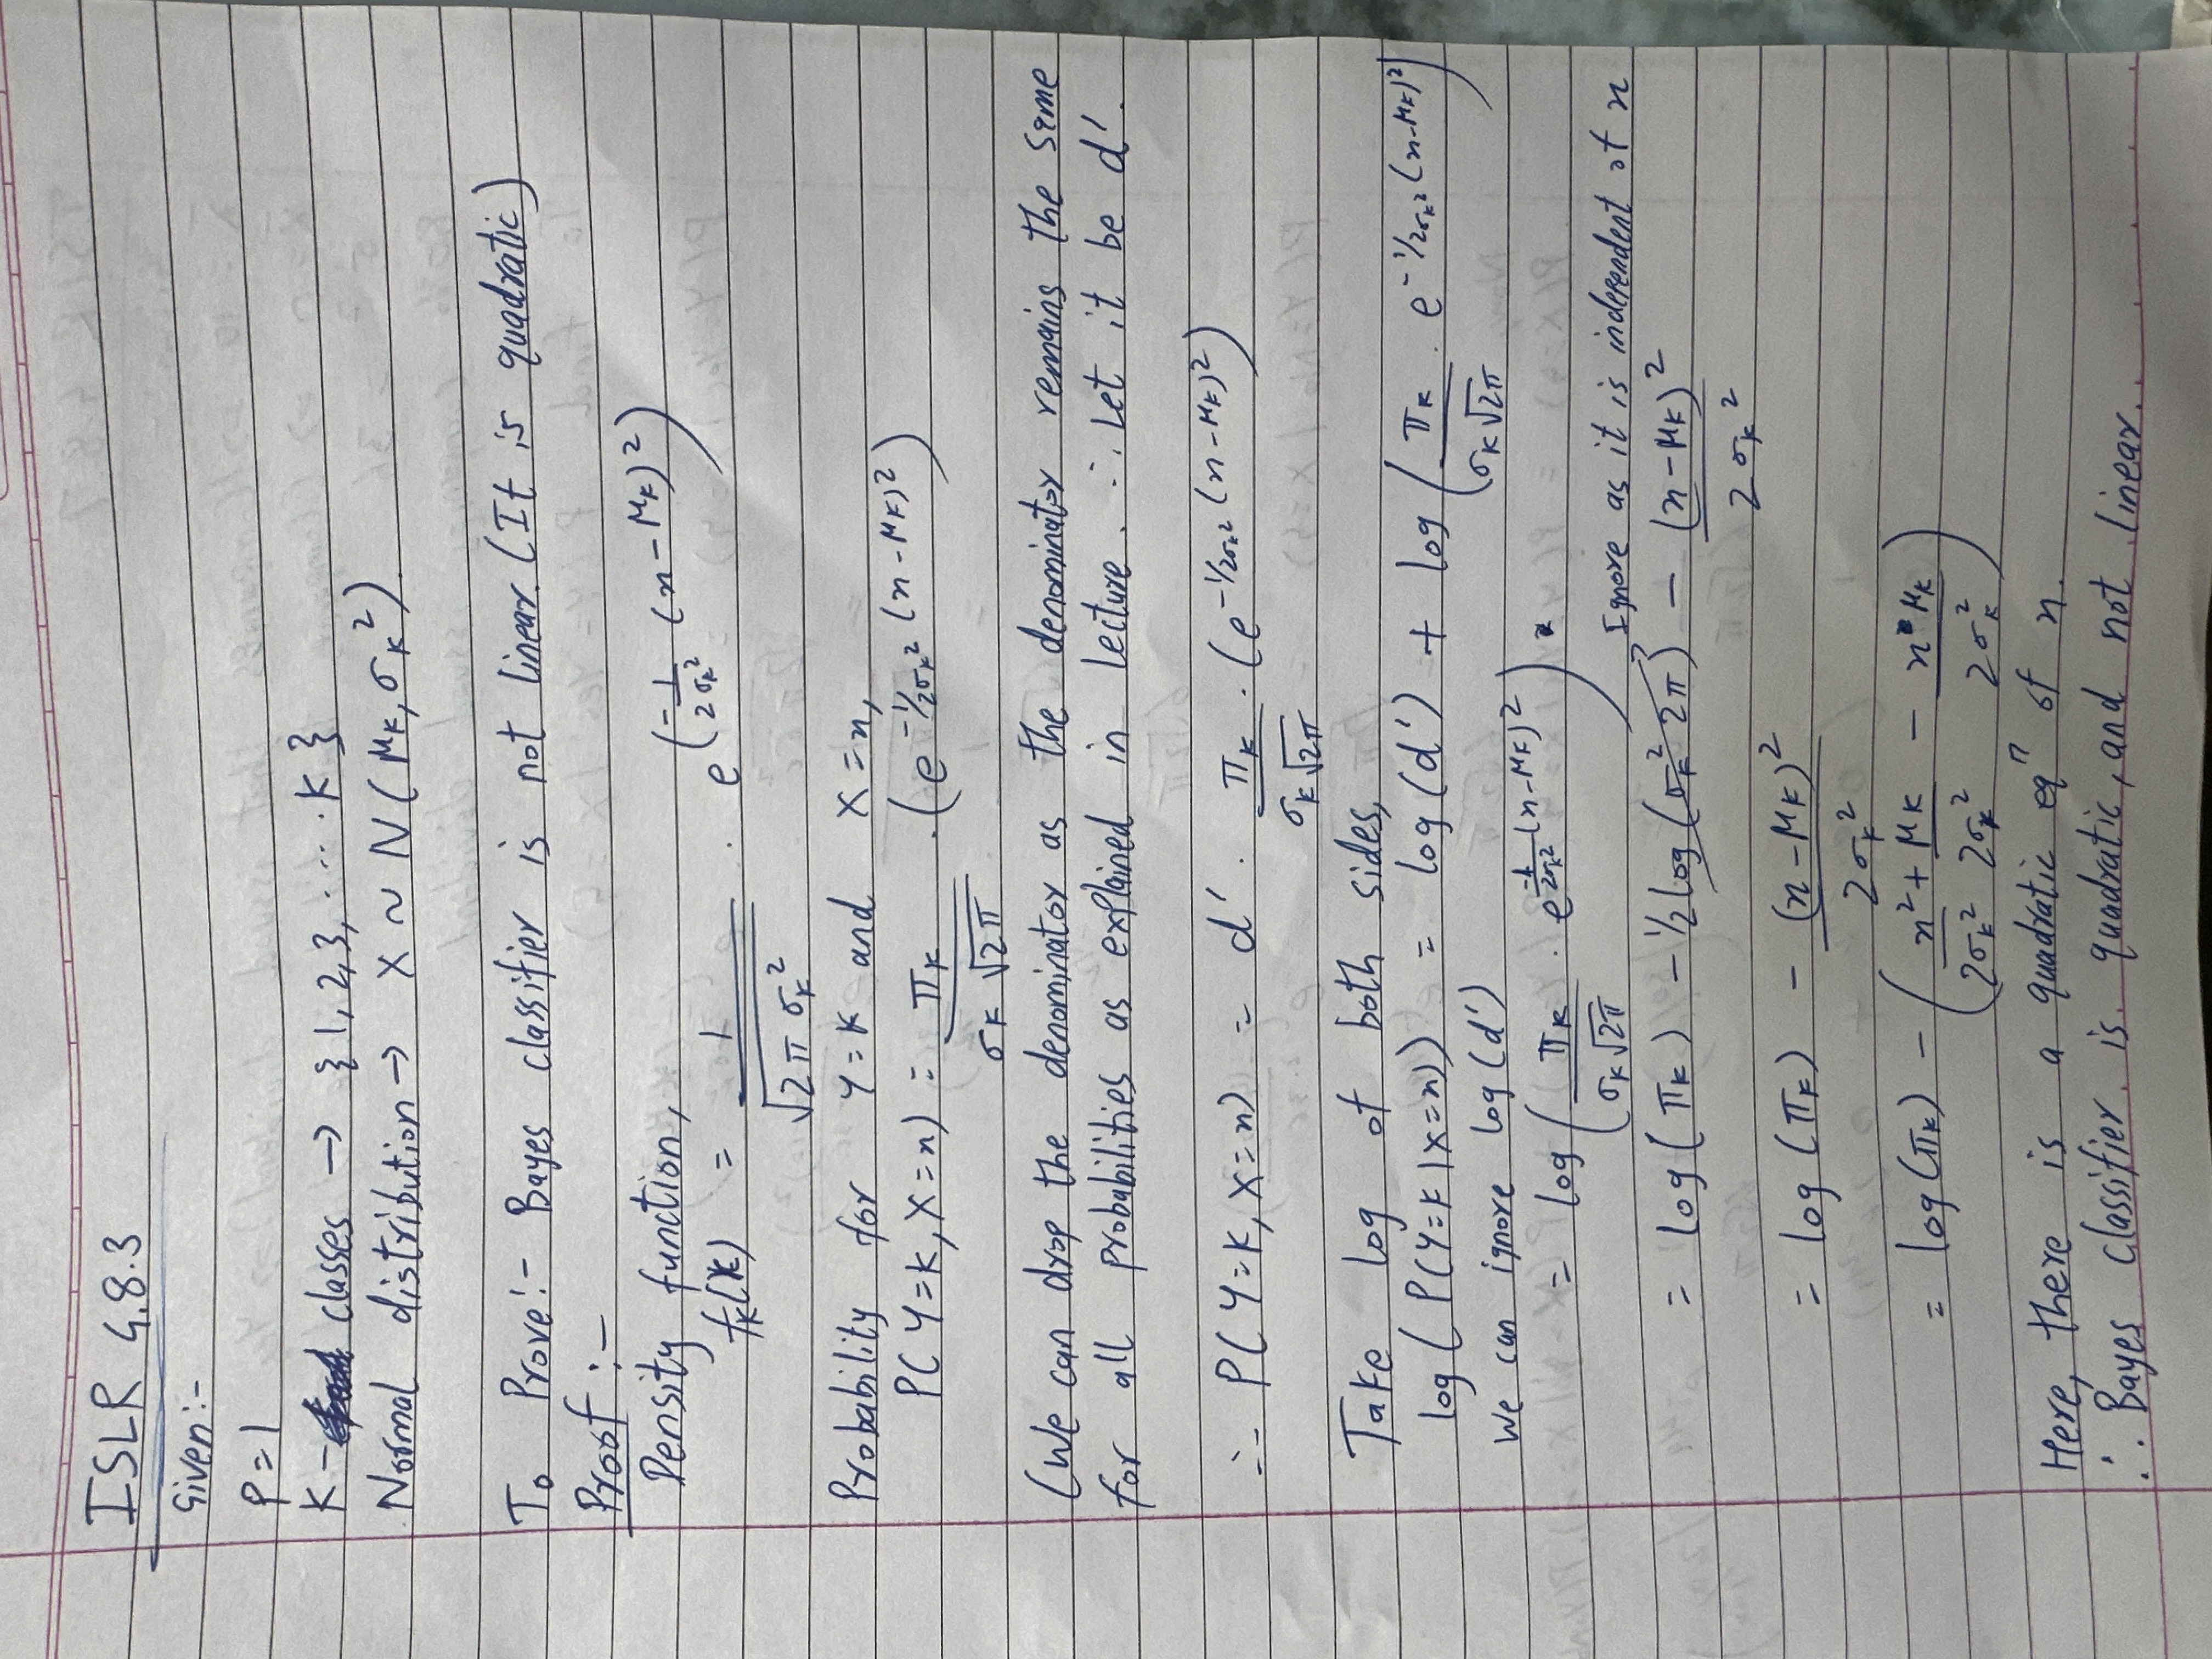 ISLR 4.8.3
Given:-
P=1
K- classes → {1, 2, 3, .... K}
Normal distribution → X ~ N(μ_K, σ_K²)
To Prove:- Bayes classifier is not linear. (It is quadratic)
Proof :-
Density function,
f_K(x) = 1/√(2π σ_K²) . e^(-1/(2σ_K²) (x-μ_K)²)
Probability for Y=K and X=x,
P(Y=K, X=x) = π_K/(σ_K √2π) . (e^(-1/2σ_K² (x-μ_K)²))
(We can drop the denominator as the denominator remains the same
for all probabilities as explained in lecture. ∴ Let it be d'.
∴ P(Y=K, X=x) = d' . π_K/(σ_K √2π) . (e^(-1/2σ_K² (x-μ_K)²))
Take log of both sides,
log(P(Y=K | X=x)) = log(d') + log(π_K/(σ_K √2π) . e^(-1/2σ_K² (x-μ_K)²))
We can ignore log(d')
= log(π_K/(σ_K √2π) . e^(-1/2σ_K² (x-μ_K)²))
Ignore as it is independent of x
= log(π_K) - ½ log(σ_K² 2π) - (x-μ_K)²/(2σ_K²)
= log(π_K) - (x-μ_K)²/(2σ_K²)
= log(π_K) - (x²/(2σ_K²) + μ_K/(2σ_K²) - x μ_K/(2σ_K²))
Here, there is a quadratic eqⁿ of x.
∴ Bayes classifier is quadratic, and not linear.